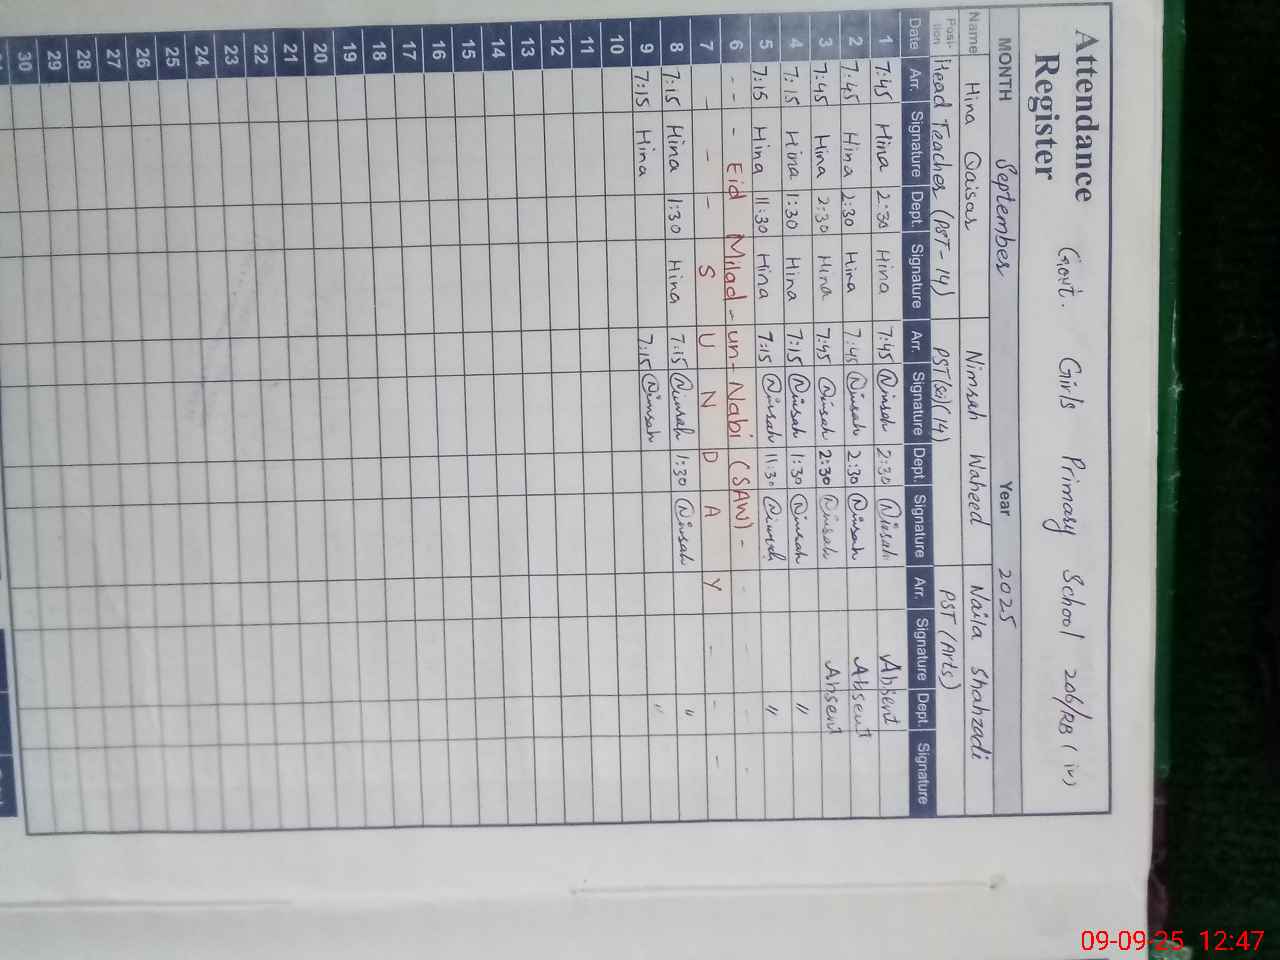 Attendance Register
Govt. Girls Primary School 206/RB (iv)
MONTH September Year 2025
Name Hina Qaisar Nimrah Waheed Naila Shahzadi
Posi-tion Head Teacher (PST-14) PST (14) PST (Arts)
Date Arr. Signature Dept. Signature Arr. Signature Dept. Signature Arr. Signature Dept. Signature
1 7:45 Hina 2:30 Hina 7:45 Nimrah 2:30 Nimrah Absent
2 7:45 Hina 2:30 Hina 7:45 Nimrah 2:30 Nimrah Absent
3 7:45 Hina 2:30 Hina 7:45 Nimrah 2:30 Nimrah Absent
4 7:15 Hina 1:30 Hina 7:15 Nimrah 1:30 Nimrah "
5 7:15 Hina 11:30 Hina 7:15 Nimrah 11:30 Nimrah "
6 - - - Eid Milad-un-Nabi (SAW) - - - - -
7 - - - S U N D A Y - - -
8 7:15 Hina 1:30 Hina 7:15 Nimrah 1:30 Nimrah "
9 7:15 Hina 7:15 Nimrah "
10
11
12
13
14
15
16
17
18
19
20
21
22
23
24
25
26
27
28
29
30
09-09-25 12:47